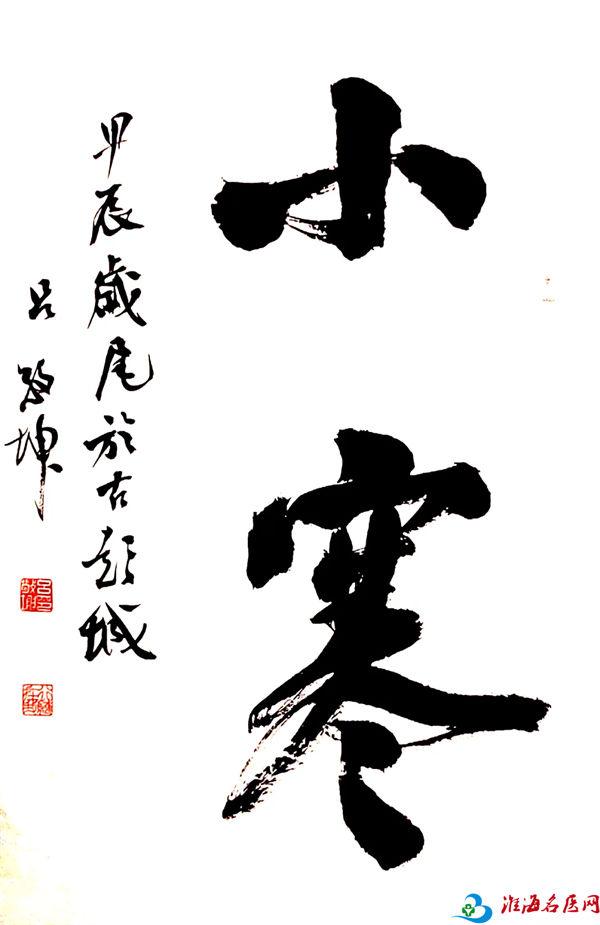 小寒
甲辰歲尾於古彭城
吕敬坤
淮海名医网